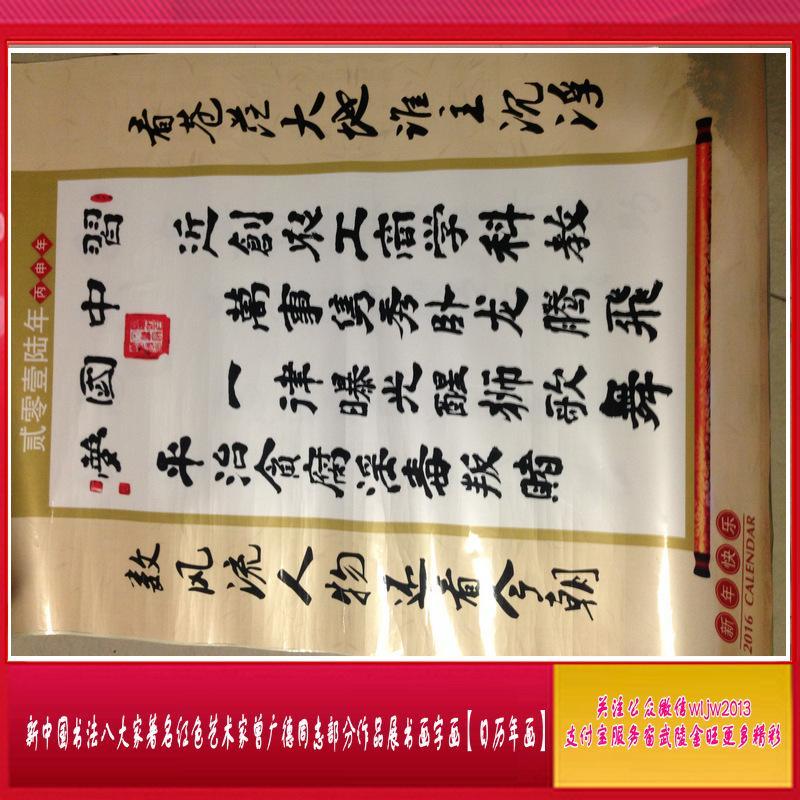 贰零壹陆年
丙申年
習中國夢
看苍茫大地谁主沉浮
近創农工商学科教
萬事隽秀卧龙腾飛
一律曝光醒狮歌舞
平治貪腐淫毒叛賭
数风流人物还看今朝
新年快乐
2016 CALENDAR
新中国书法八大家著名红色艺术家曾广德同志部分作品展书画字画【日历年画】
关注公众微信wljw2013
支付宝服务窗武陵金旺更多精彩